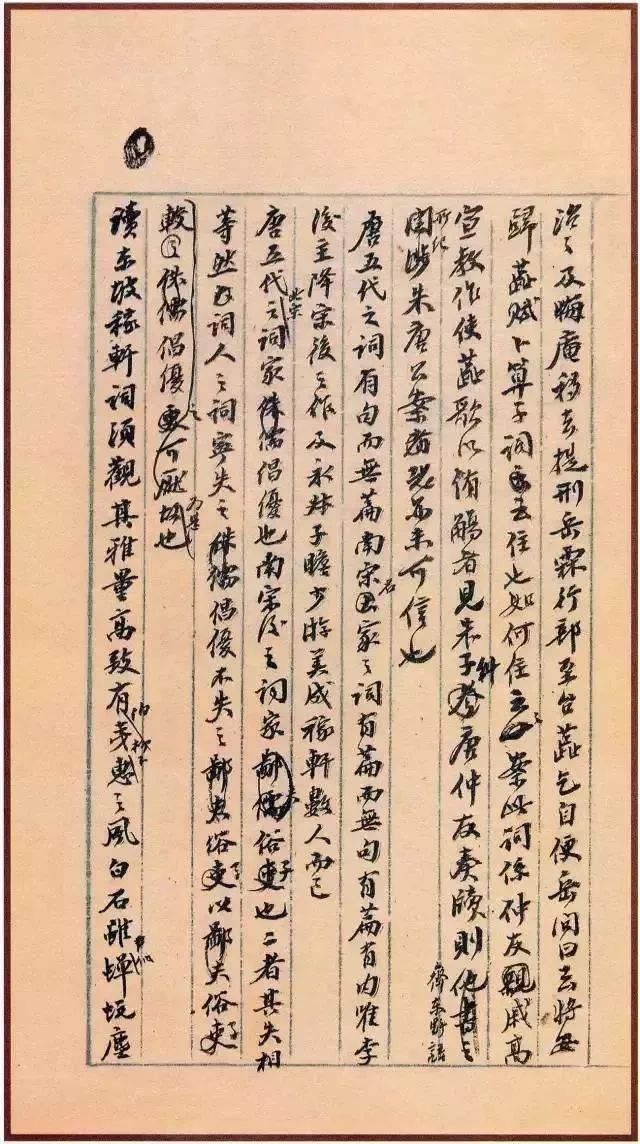 治之及晦庵移去提刑岳霖行部至台蕊乞自便岳問曰去將安
歸蕊賦卜算子詞云去住也如何住云云案此詞係仲友親戚高
宣教作使蕊歌以侑觴者見朱子糾唐仲友奏牘則齊東野語
所紀
朱唐公案恐亦未可信也
唐五代之詞有句而無篇南宋名家之詞有篇而無句有篇有句唯李
後主降宋後之作及永叔子瞻少游美成稼軒數人而已
唐五代北宋之詞家倡優也南宋後之詞家俗子也二者其失相
等然詞人之詞寧失之倡優不失之俗子以俗子
之可厭較倡優為甚故也
讀東坡稼軒詞須觀其雅量高致有伯夷柳下惠之風白石雖似蟬蛻塵